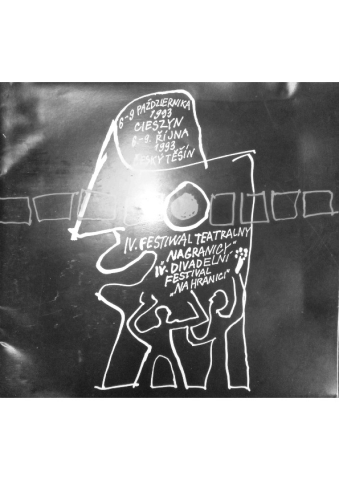 6-9 PAŹDZIERNIKA
1993
CIESZYN
6.-9. ŘÍJNA
1993
ČESKÝ TĚŠÍN
IV. FESTIWAL TEATRALNY
"NA GRANICY"
IV. DIVADELNÍ
FESTIVAL
"NA HRANICI"